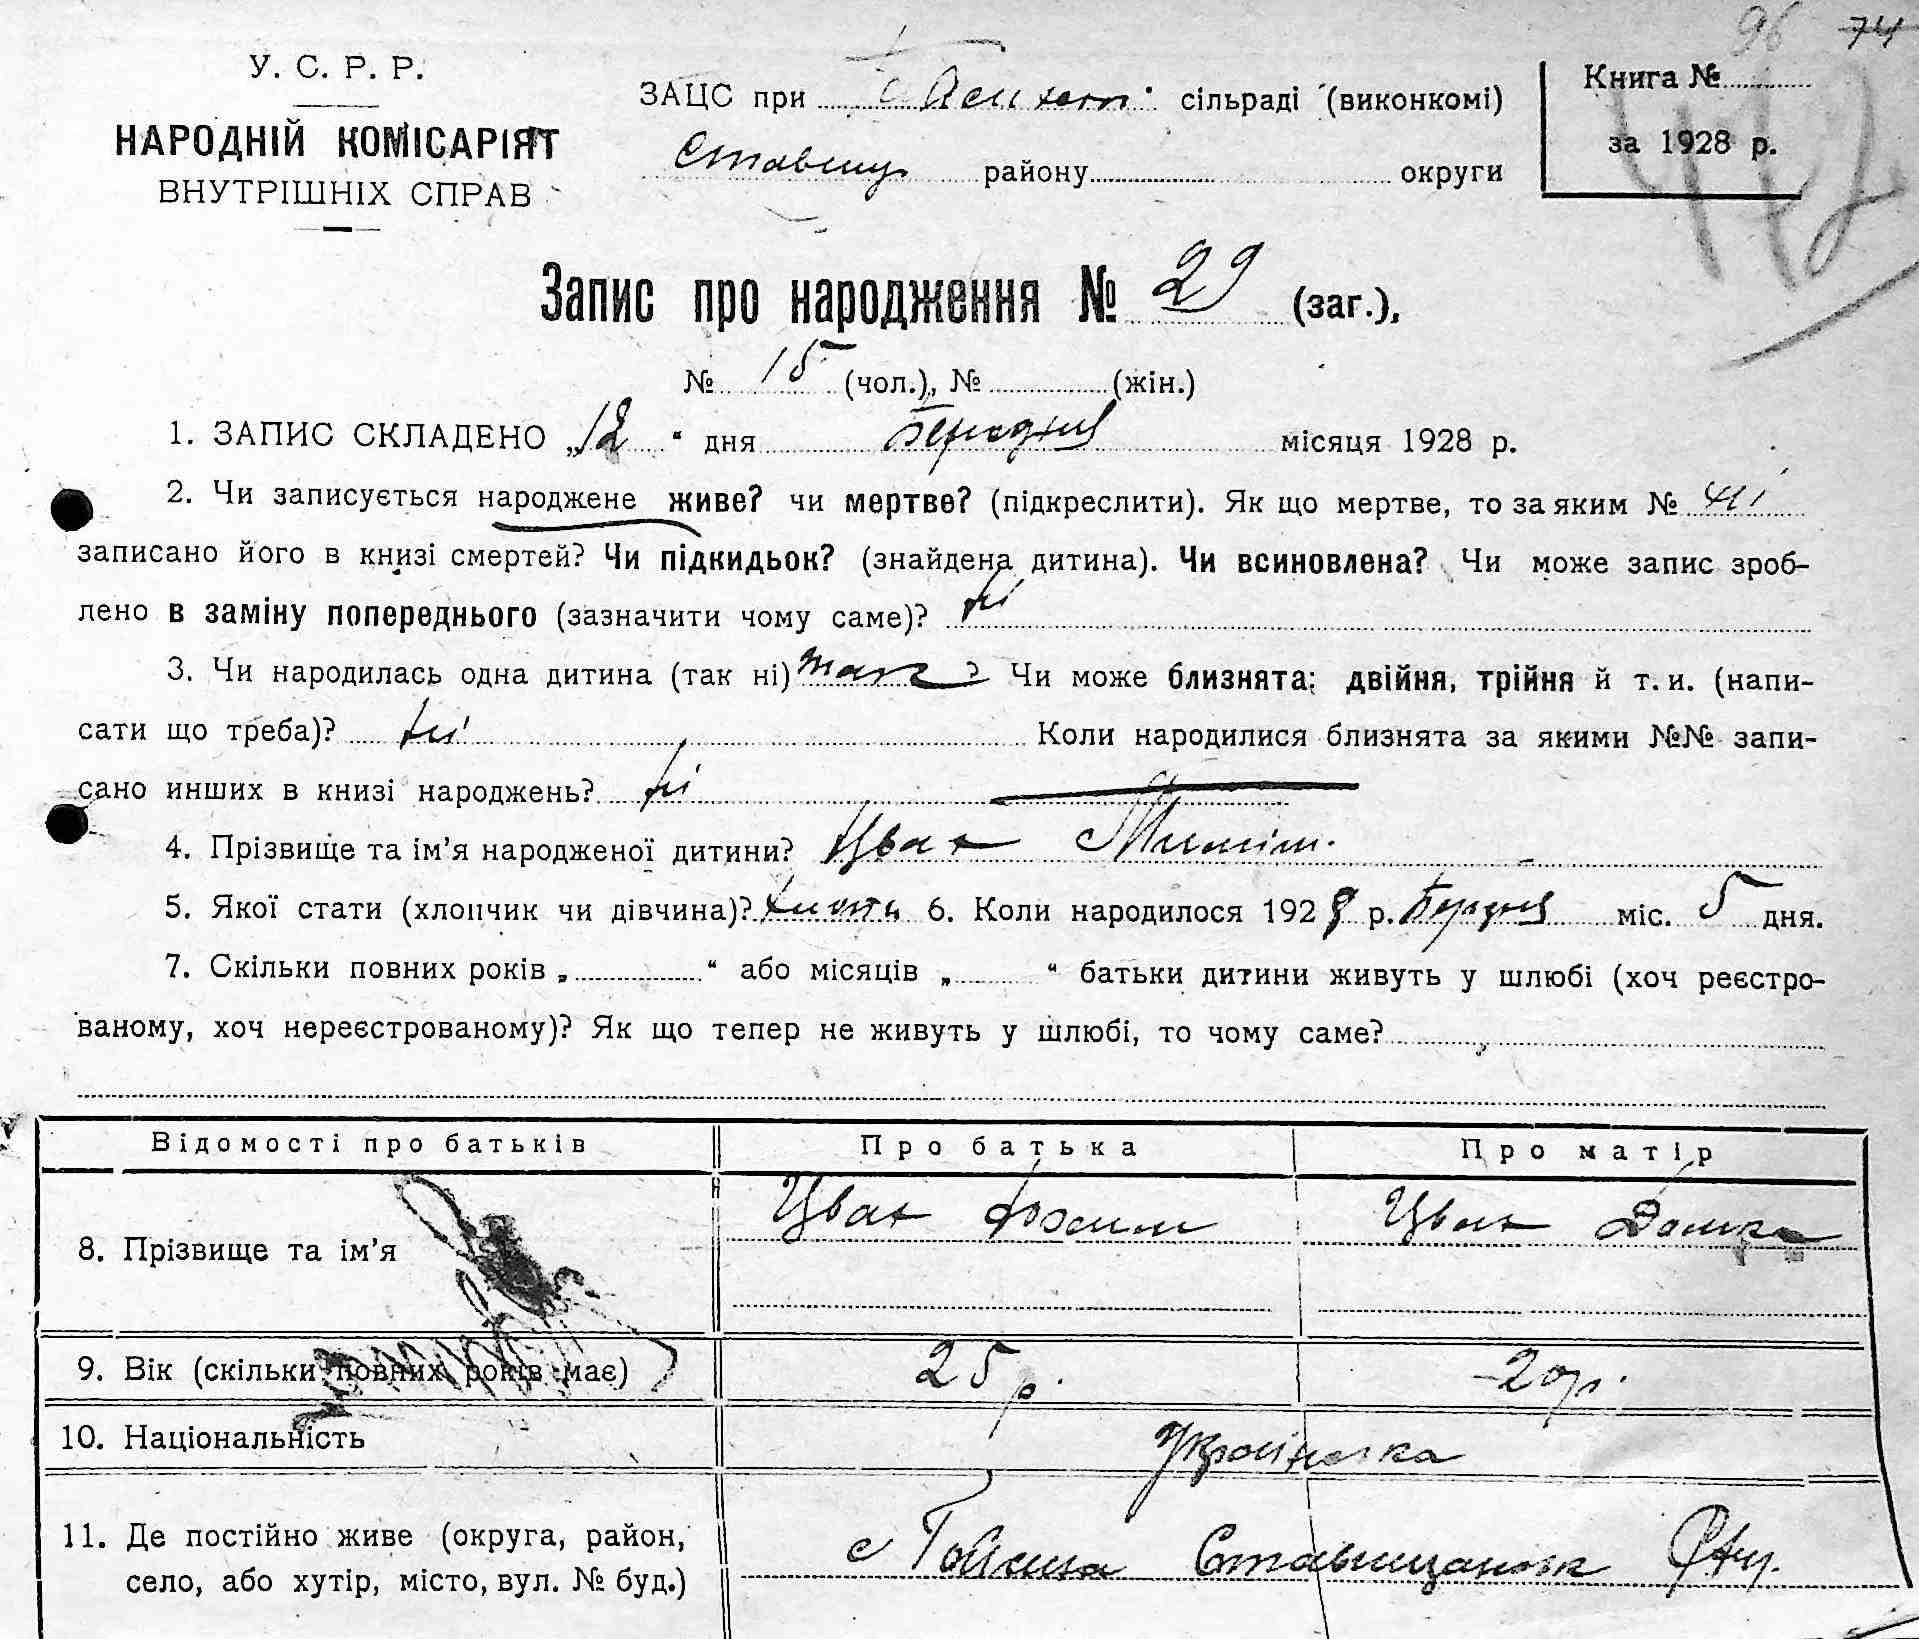 96 74
У. С. Р. Р.
НАРОДНІЙ КОМІСАРІЯТ
ВНУТРІШНІХ СПРАВ
ЗАЦС при сільраді (виконкомі)
Ставищ району округи
Книга №
за 1928 р.
Запис про народження № 29 (заг.),
№ 15 (чол.), № (жін.)
1. ЗАПИС СКЛАДЕНО „12 “ дня Березня місяця 1928 р.
2. Чи записується народжене живе? чи мертве? (підкреслити). Як що мертве, то за яким № ні
записано його в книзі смертей? Чи підкидьок? (знайдена дитина). Чи всиновлена? Чи може запис зроб-
лено в заміну попереднього (зазначити чому саме)? ні
3. Чи народилась одна дитина (так ні) так ? Чи може близнята: двійня, трійня й т. и. (напи-
сати що треба)? ні Коли народилися близнята за якими №№ запи-
сано инших в книзі народжень? ні
4. Прізвище та ім’я народженої дитини? Цвах
5. Якої стати (хлопчик чи дівчина)? 6. Коли народилося 1928 р. Березня міс. 5 дня.
7. Скільки повних років „ “ або місяців „ “ батьки дитини живуть у шлюбі (хоч реєстро-
ваному, хоч нереєстрованому)? Як що тепер не живуть у шлюбі, то чому саме?
Відомості про батьків Про батька Про матір
8. Прізвище та ім’я Цвах Юхим Цвах Домка
9. Вік (скільки повних років має) 25 р. 20 р.
10. Національність Українська
11. Де постійно живе (округа, район,
село, або хутір, місто, вул. № буд.) с